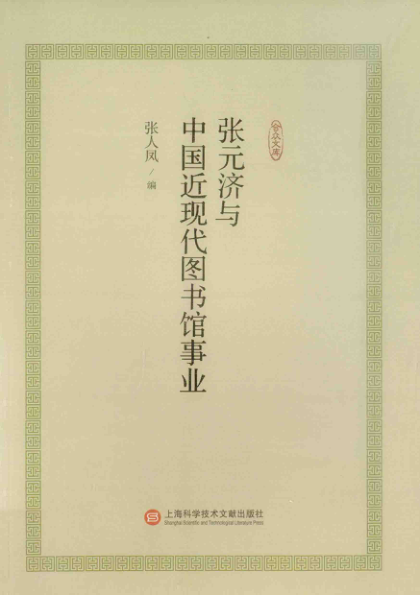 张元济与
中国近现代图书馆事业
张人凤/编
上海科学技术文献出版社
Shanghai Scientific and Technological Literature Press